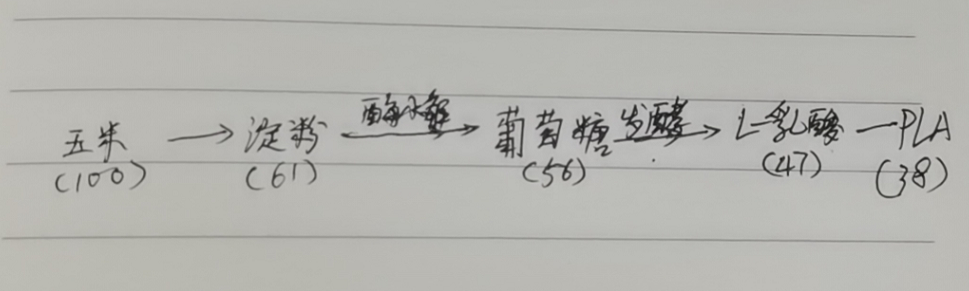 玉米 → 淀粉 酶水解 → 葡萄糖 发酵 → L-乳酸 — PLA
(100) (61) (56) (47) (38)